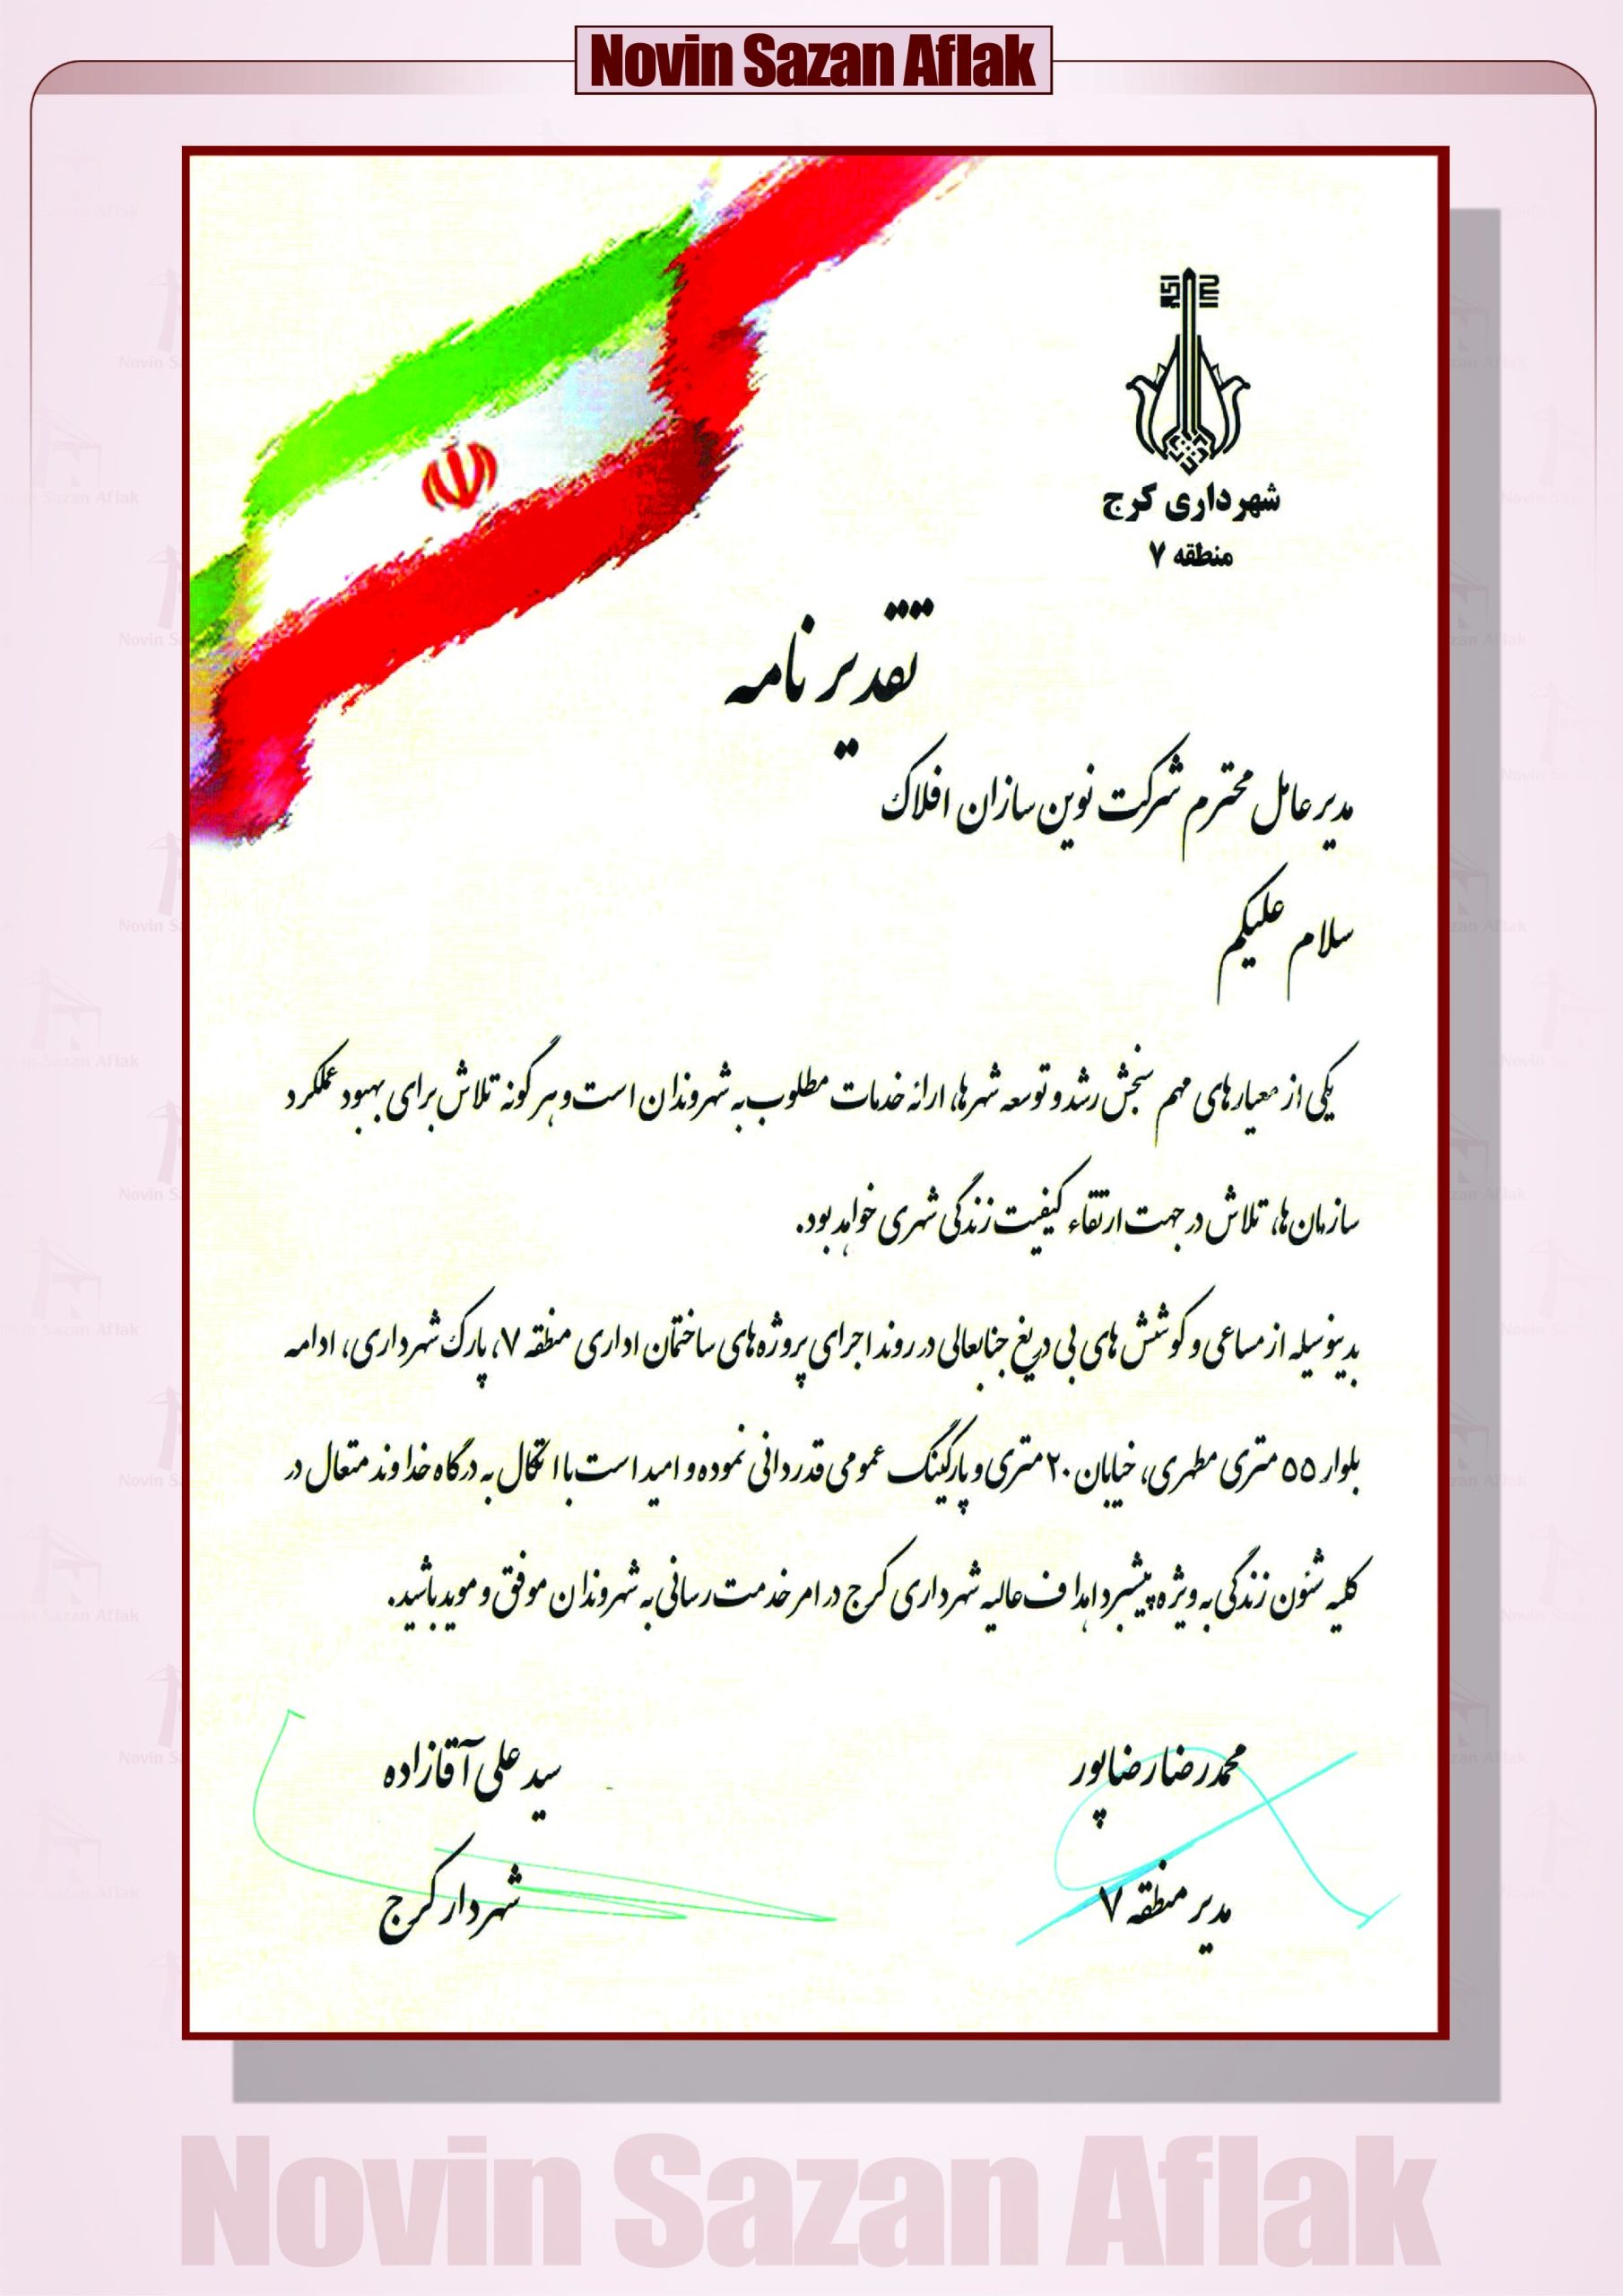 Novin Sazan Aflak
شهرداری کرج
منطقه ۷
تقدیر نامه
مدیر عامل محترم شرکت نوین سازان افلاک
سلام علیکم
یکی از معیارهای مهم سنجش رشد و توسعه شهرها، ارائه خدمات مطلوب به شهروندان است و هر گونه تلاش برای بهبود عملکرد
سازمان ها، تلاش در جهت ارتقاء کیفیت زندگی شهری خواهد بود.
بدینوسیله از مساعی و کوشش های بی دریغ جنابعالی در روند اجرای پروژه های ساختمان اداری منطقه ۷، پارک شهرداری، ادامه
بلوار ۵۵ متری مطهری، خیابان ۲۰ متری و پارکینگ عمومی قدردانی نموده و امید است با اتکال به درگاه خداوند متعال در
کلیه شئون زندگی به ویژه پیشبرد اهداف عالیه شهرداری کرج در امر خدمت رسانی به شهروندان موفق و موید باشید.
محمدرضا رضاپور
سید علی آقازاده
مدیر منطقه ۷
شهردار کرج
Novin Sazan Aflak